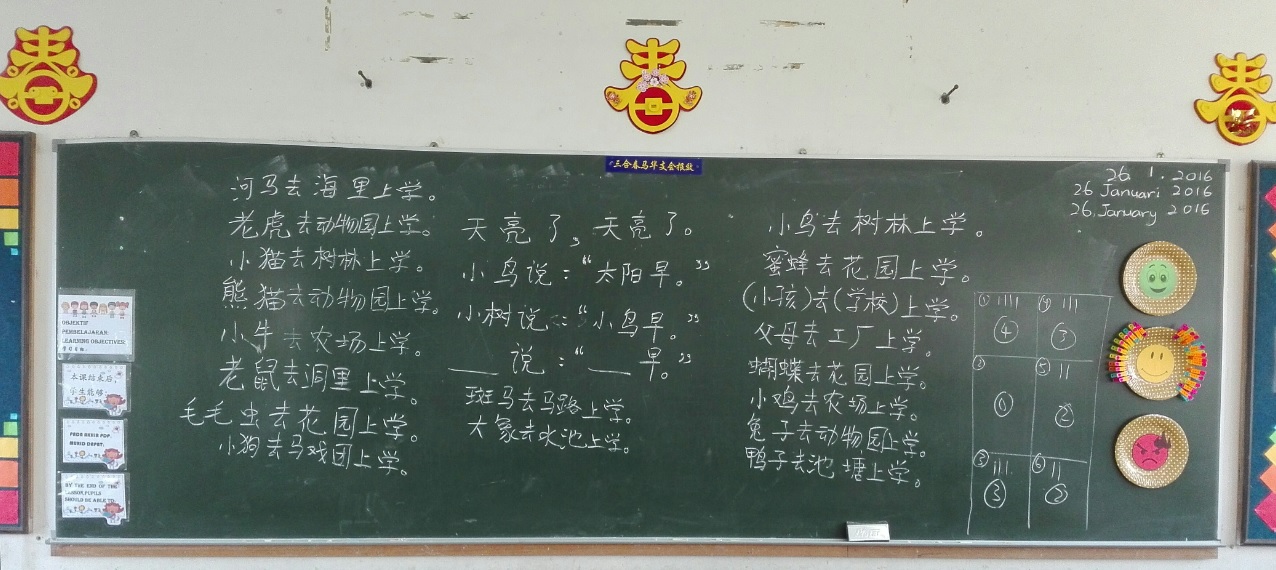 春
春
春
三合春马华支会报效
河马去海里上学。
老虎去动物园上学。
小猫去树林上学。
熊猫去动物园上学。
小牛去农场上学。
老鼠去洞里上学。
毛毛虫去花园上学。
小狗去马戏团上学。
天亮了,天亮了。
小鸟说:“太阳早。”
小树说:“小鸟早。”
___说:“___早。”
斑马去马路上学。
大象去水池上学。
小鸟去树林上学。
蜜蜂去花园上学。
(小孩)去(学校)上学。
父母去工厂上学。
蝴蝶去花园上学。
小鸡去农场上学。
兔子去动物园上学。
鸭子去池塘上学。
26. 1. 2016
26 Januari 2016
26 January 2016
① ④
④ ③
② ⑤
① ②
③ ⑥
③ ②
OBJEKTIF
PEMBELAJARAN:
LEARNING OBJECTIVES:
学习目标:
本课结束后,
学生能够:
PADA AKHIR PDP,
MURID DAPAT:
BY THE END OF THE
LESSON, PUPILS
SHOULD BE ABLE TO: